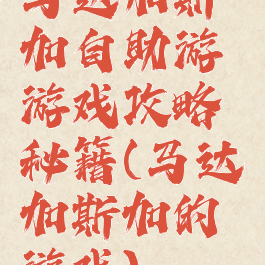 马达加斯
加自助游
游戏攻略
秘籍(马达
加斯加的
游戏)